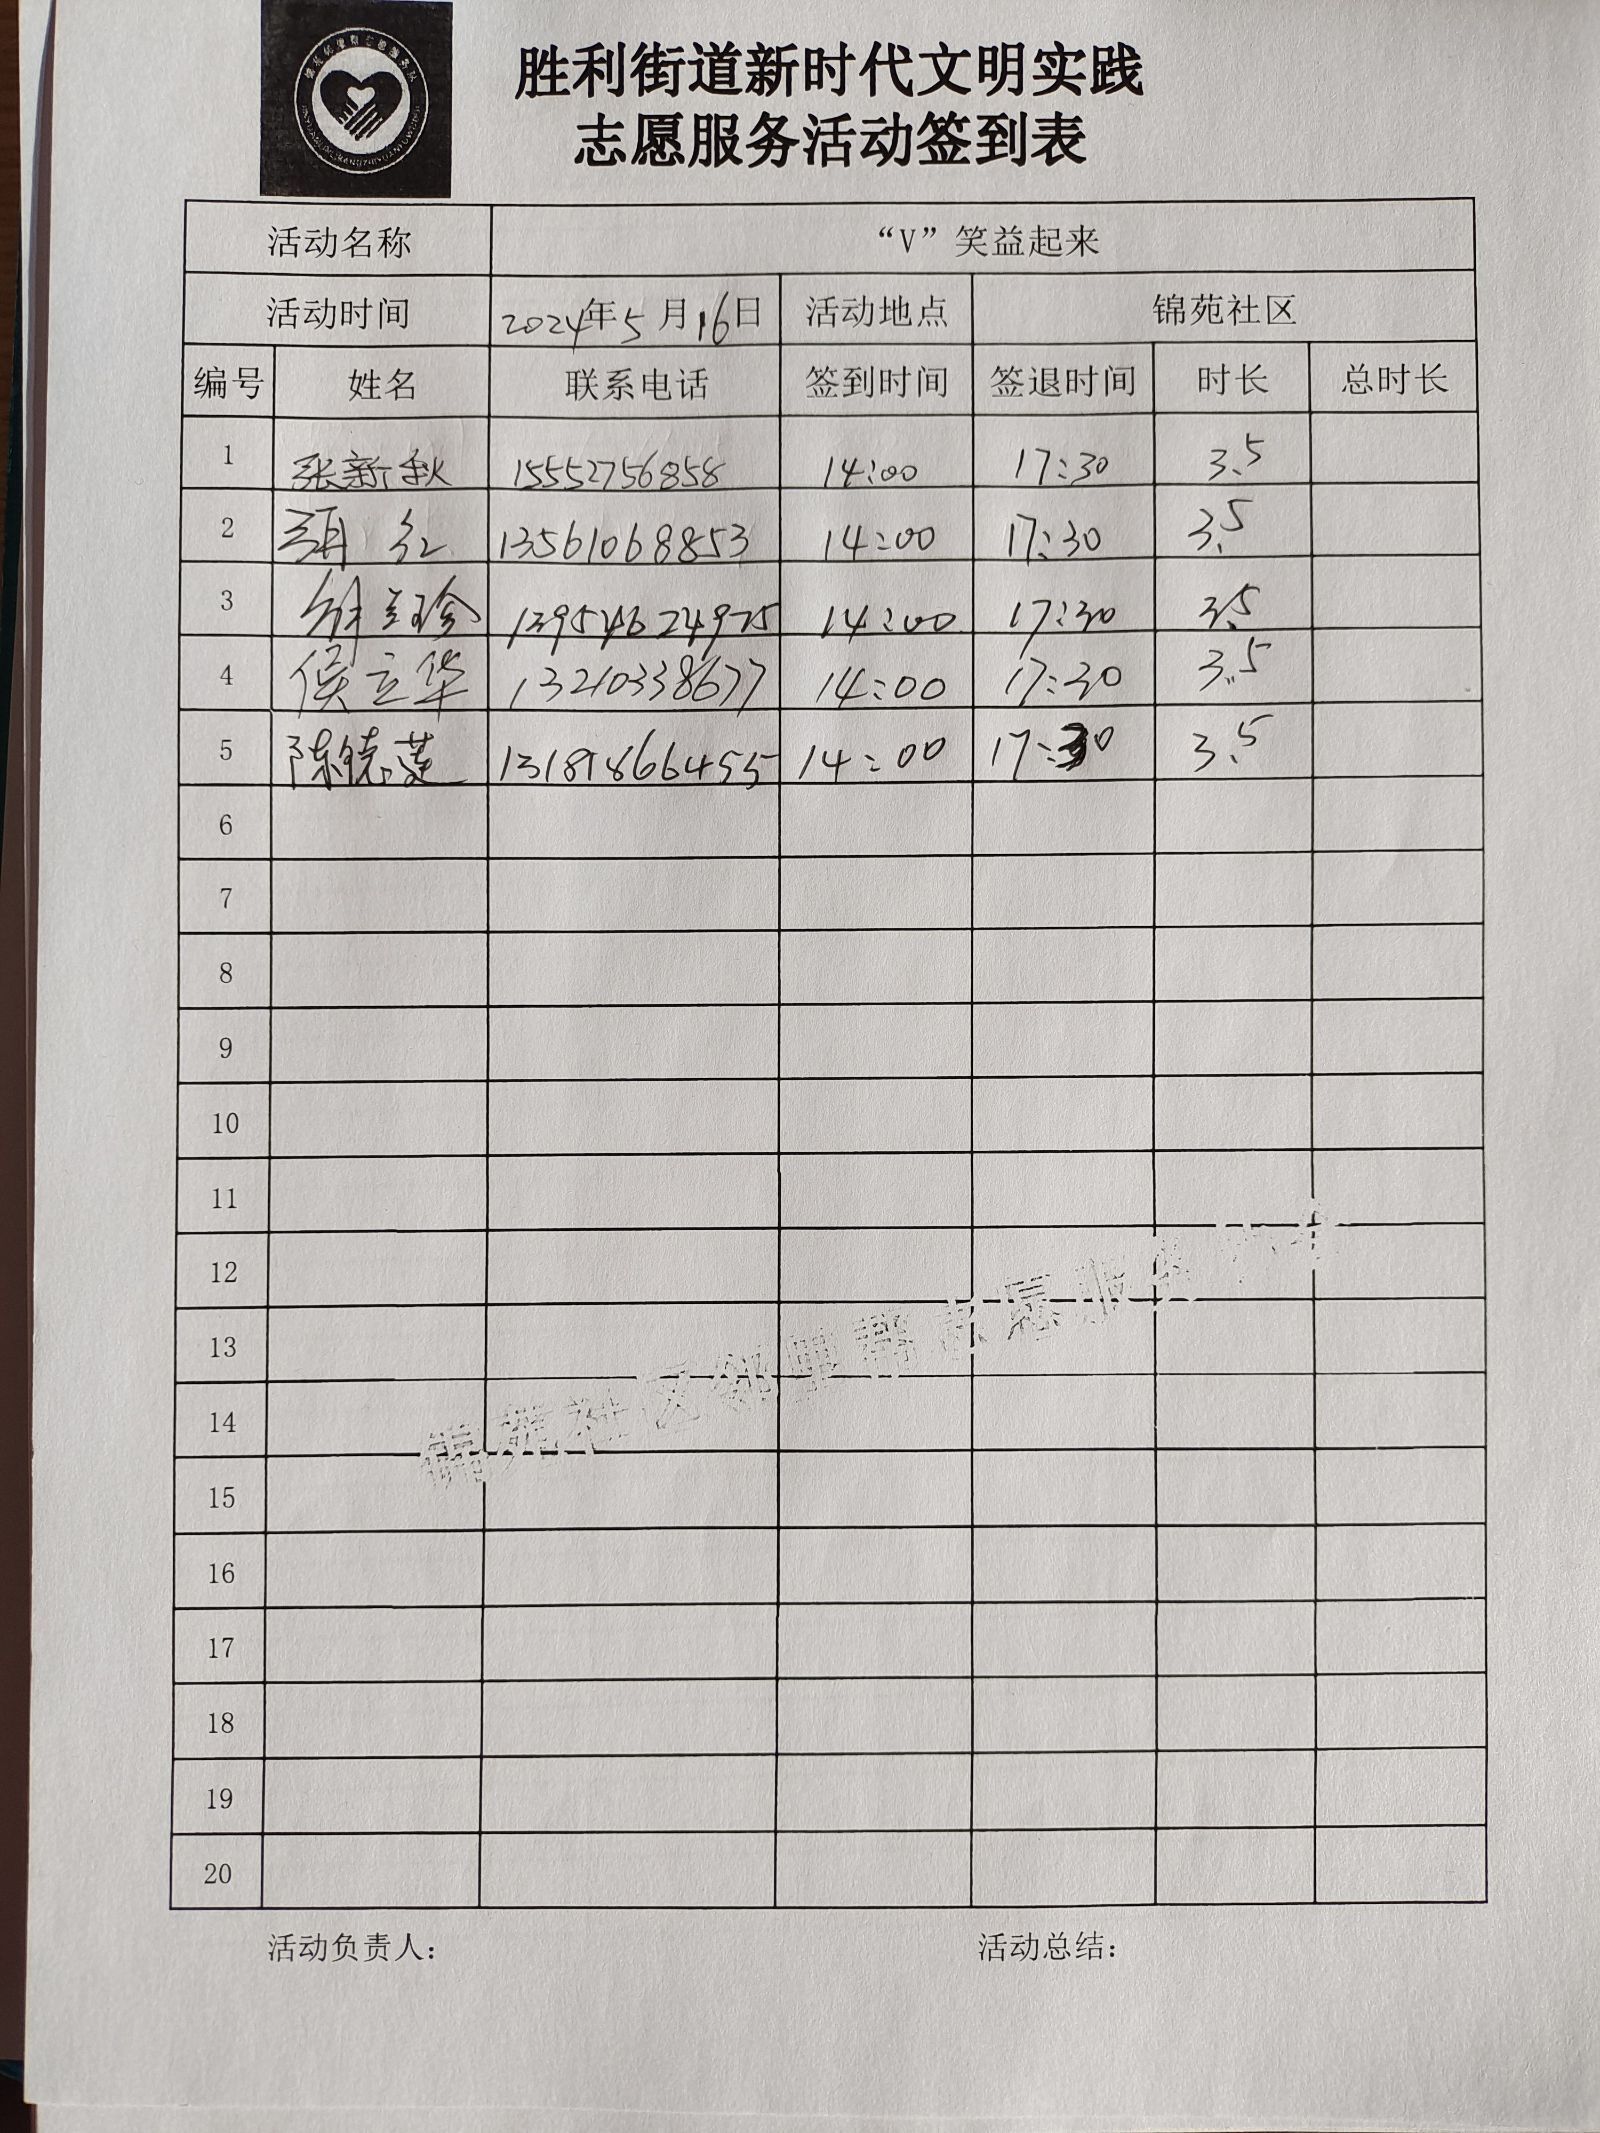 胜利街道新时代文明实践
志愿服务活动签到表
活动名称 “V”笑益起来
活动时间 2024年5月16日 活动地点 锦苑社区
编号 姓名 联系电话 签到时间 签退时间 时长 总时长
1 张新秋 15552756858 14:00 17:30 3.5
2 红 13561068853 14:00 17:30 3.5
3 13954624975 14:00 17:30 3.5
4 侯立华 13210338677 14:00 17:30 3.5
5 陈德莲 13181866455 14:00 17:30 3.5
6
7
8
9
10
11
12
13
14
15
16
17
18
19
20
锦苑社区邻里帮志愿服务
活动负责人： 活动总结：